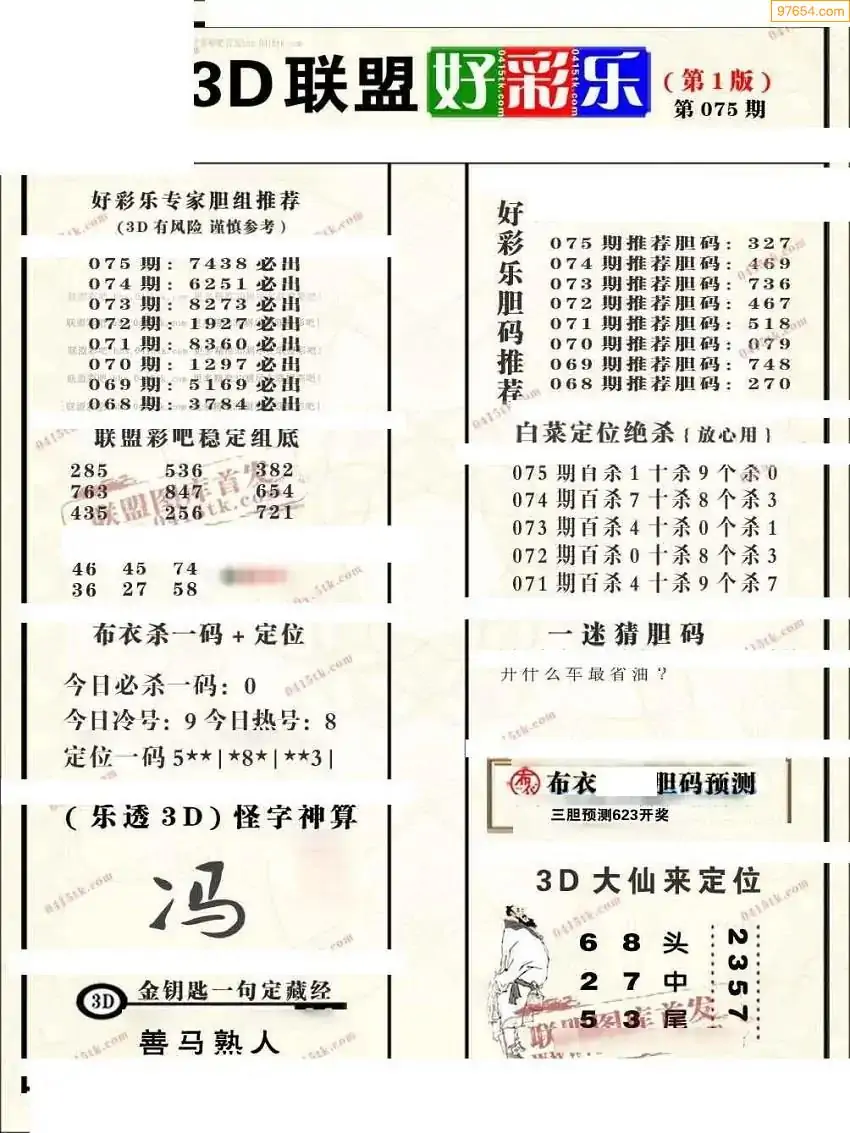 97654.com
3D联盟好彩乐
(第1版)
第075期
好彩乐专家胆组推荐
(3D有风险 谨慎参考)
075期:7438必出
074期:6251必出
073期:8273必出
072期:1927必出
071期:8360必出
070期:1297必出
069期:5169必出
068期:3784必出
联盟彩吧稳定组底
285 536 382
763 847 654
435 256 721
联盟图库首发
0415tk.com
46 45 74
36 27 58
布衣杀一码+定位
今日必杀一码:0
今日冷号:9 今日热号:8
定位一码5**|*8*|**3|
(乐透3D)怪字神算
冯
3D 金钥匙一句定藏经
善马熟人
好彩乐胆码推荐
075期推荐胆码:327
074期推荐胆码:469
073期推荐胆码:736
072期推荐胆码:467
071期推荐胆码:518
070期推荐胆码:079
069期推荐胆码:748
068期推荐胆码:270
白菜定位绝杀{放心用}
075期百杀1十杀9个杀0
074期百杀7十杀8个杀3
073期百杀4十杀0个杀1
072期百杀0十杀8个杀3
071期百杀4十杀9个杀7
一迷猜胆码
开什么车最省油?
布衣 胆码预测
三胆预测623开奖
3D大仙来定位
6 8 头
2 7 中
5 3 尾
2357
联盟图库首发